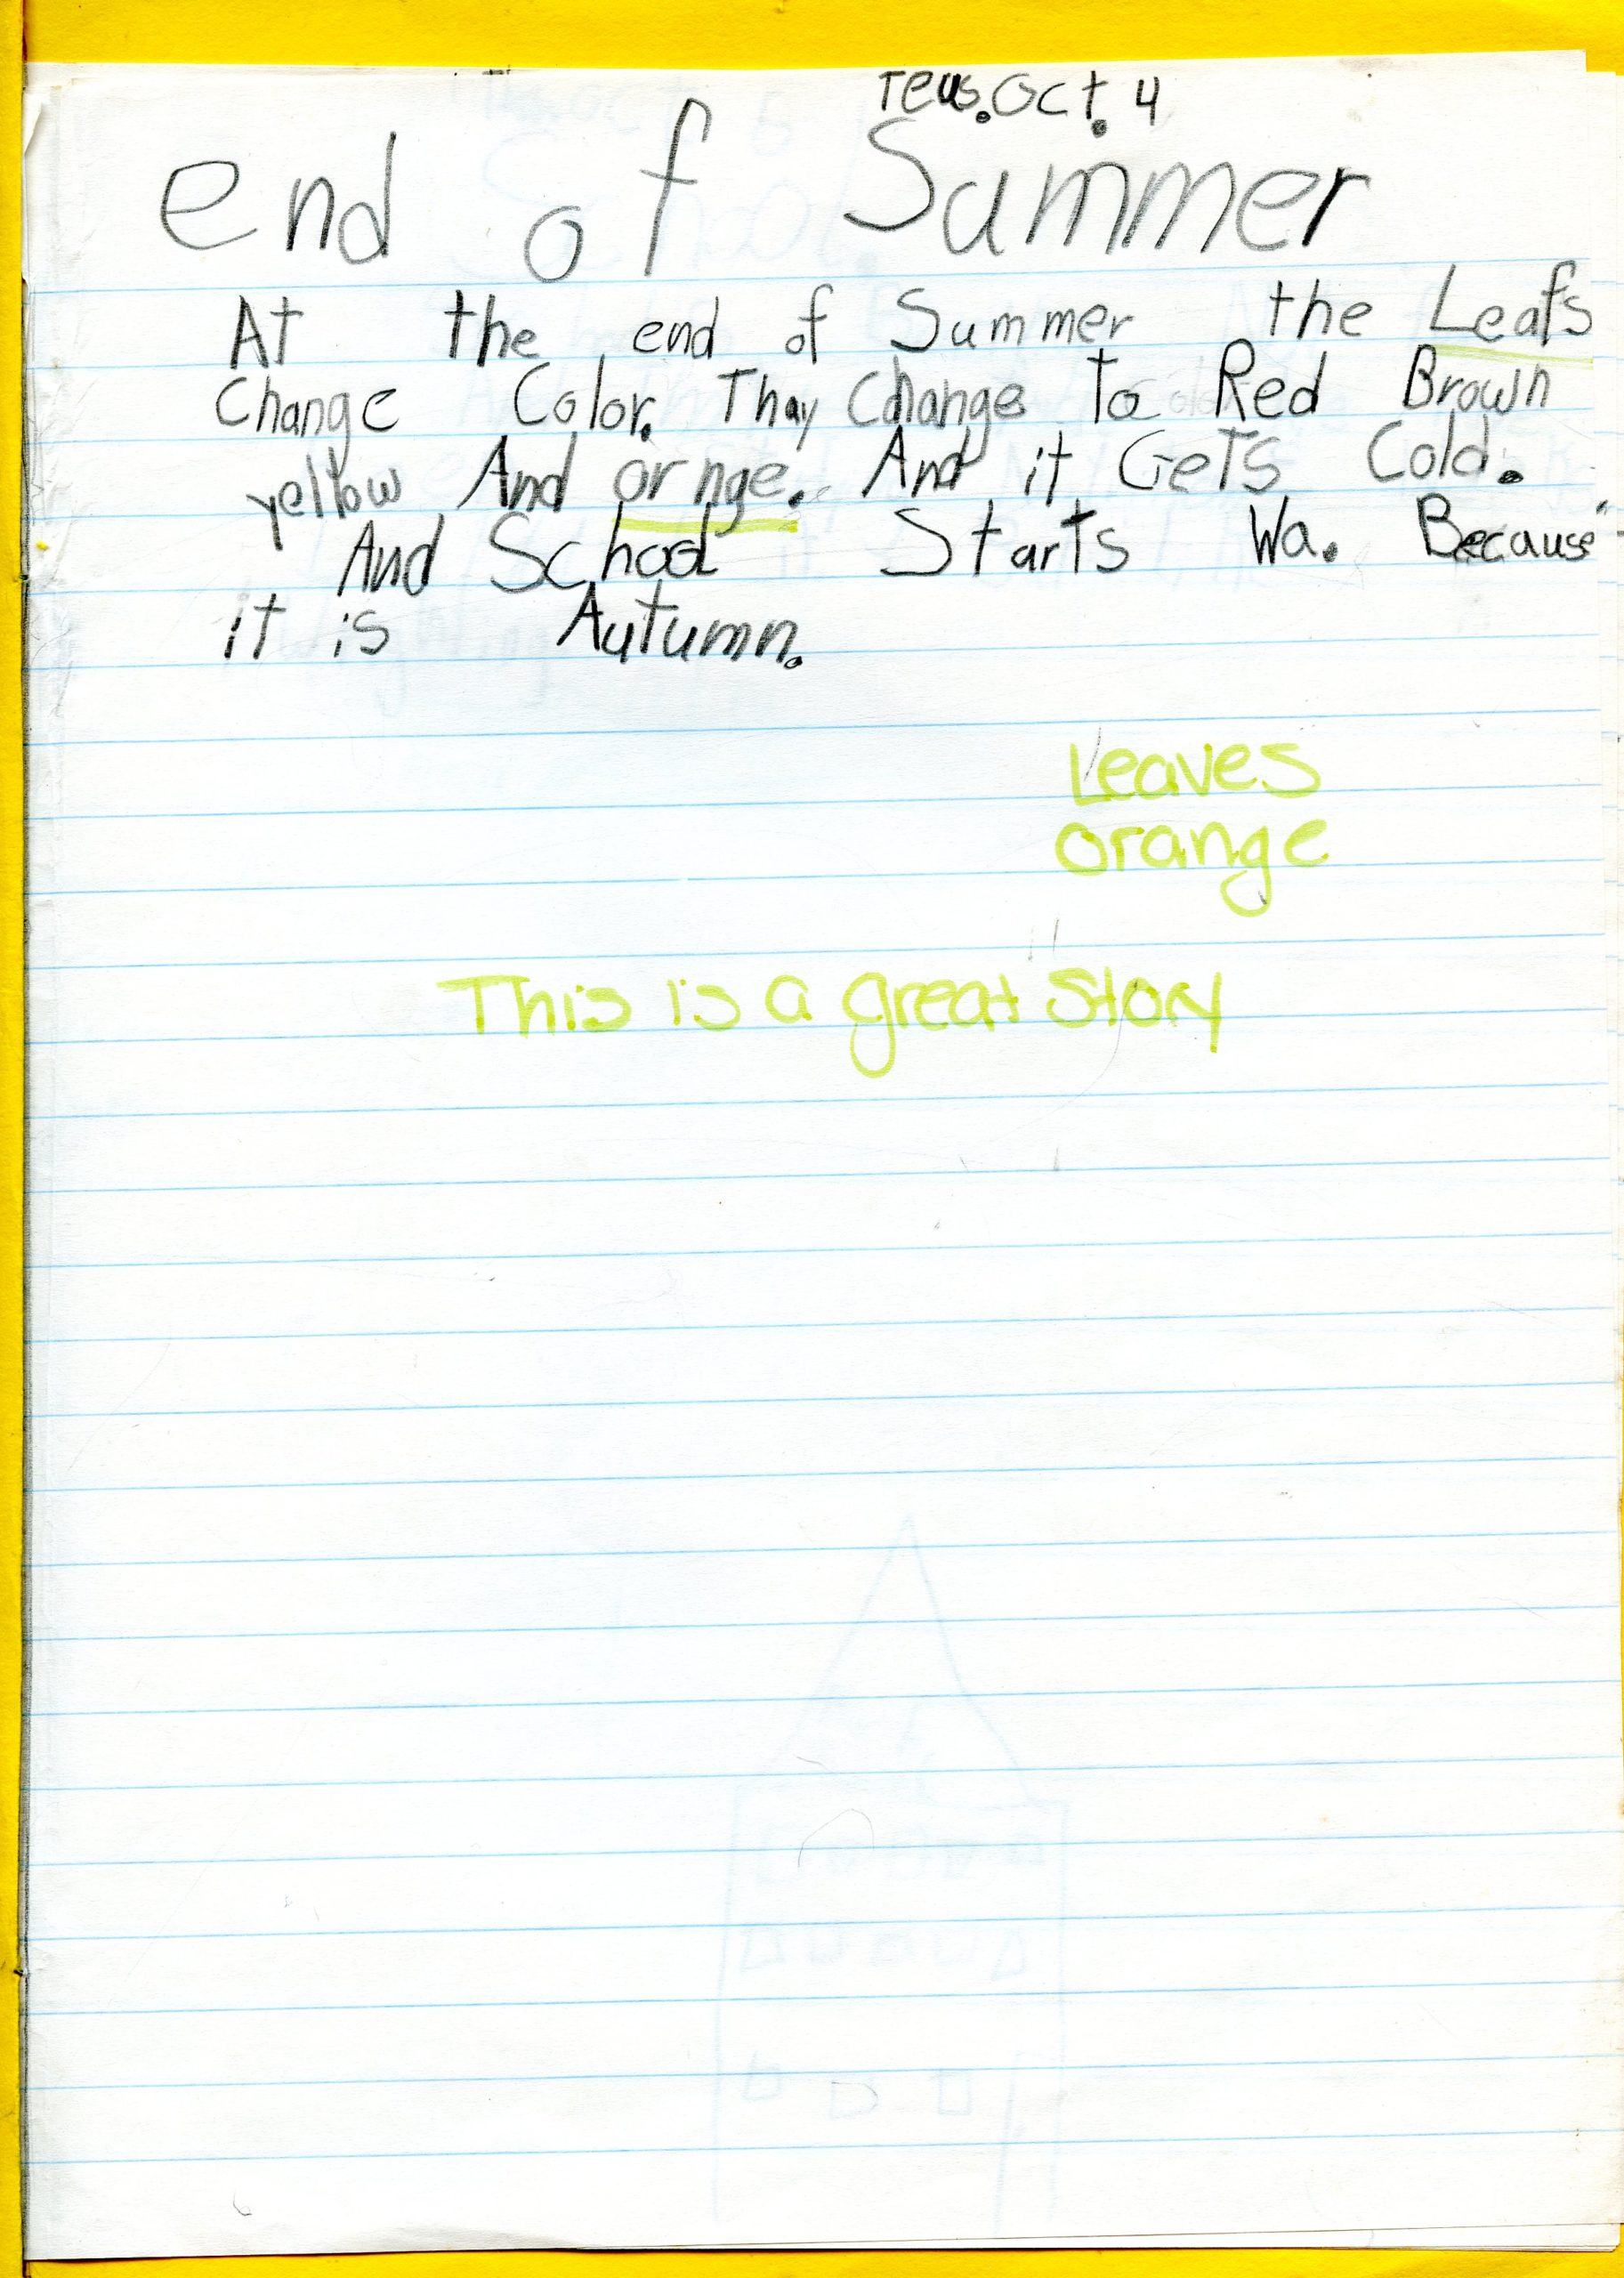 Teus. Oct. 4
end of Summer
At the end of Summer the Leafs
Change Color. Thay Change to Red Brown
yellow And ornge. And it Gets Cold.
And School Starts Wa. Because
it is Autumn.
Leaves
orange
This is a great story